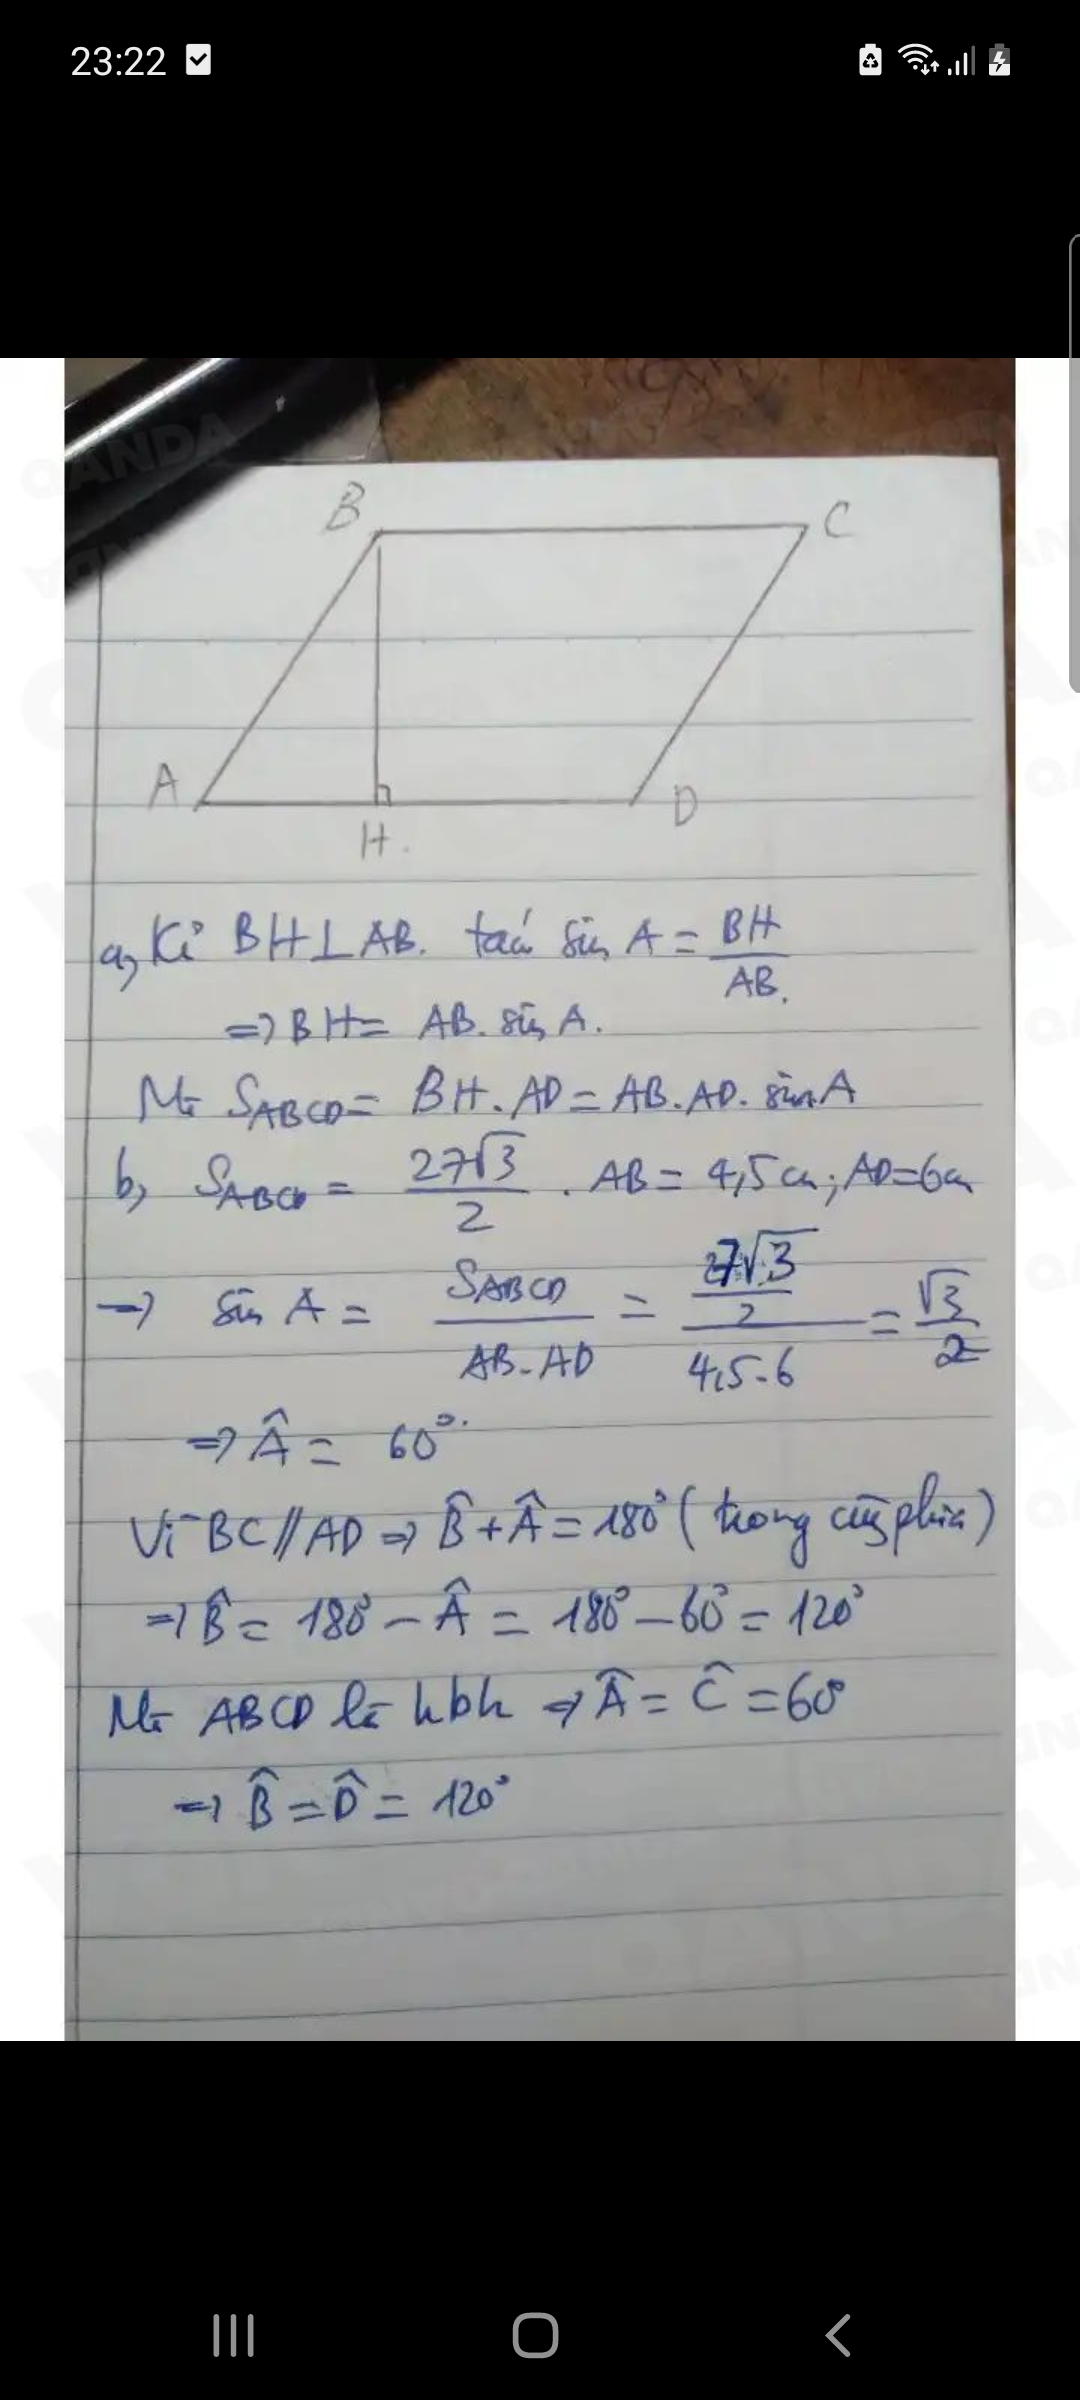 23:22
B
C
A
D
H.
a, Kẻ BH⊥AB. ta có sin A = BH/AB.
=> BH = AB. sin A.
Mà SABCD = BH. AD = AB. AD. sin A
b, SABCD = 27√3/2 . AB = 4,5 cm; AD = 6cm
→ sin A = SABCD/AB.AD = (27√3/2)/4,5.6 = √3/2
=> Â = 60°.
Vì BC // AD => B̂ + Â = 180° (trong cùng phía)
=> B̂ = 180° - Â = 180° - 60° = 120°
Mà ABCD là hbh => Â = Ĉ = 60°
=> B̂ = D̂ = 120°
QANDA